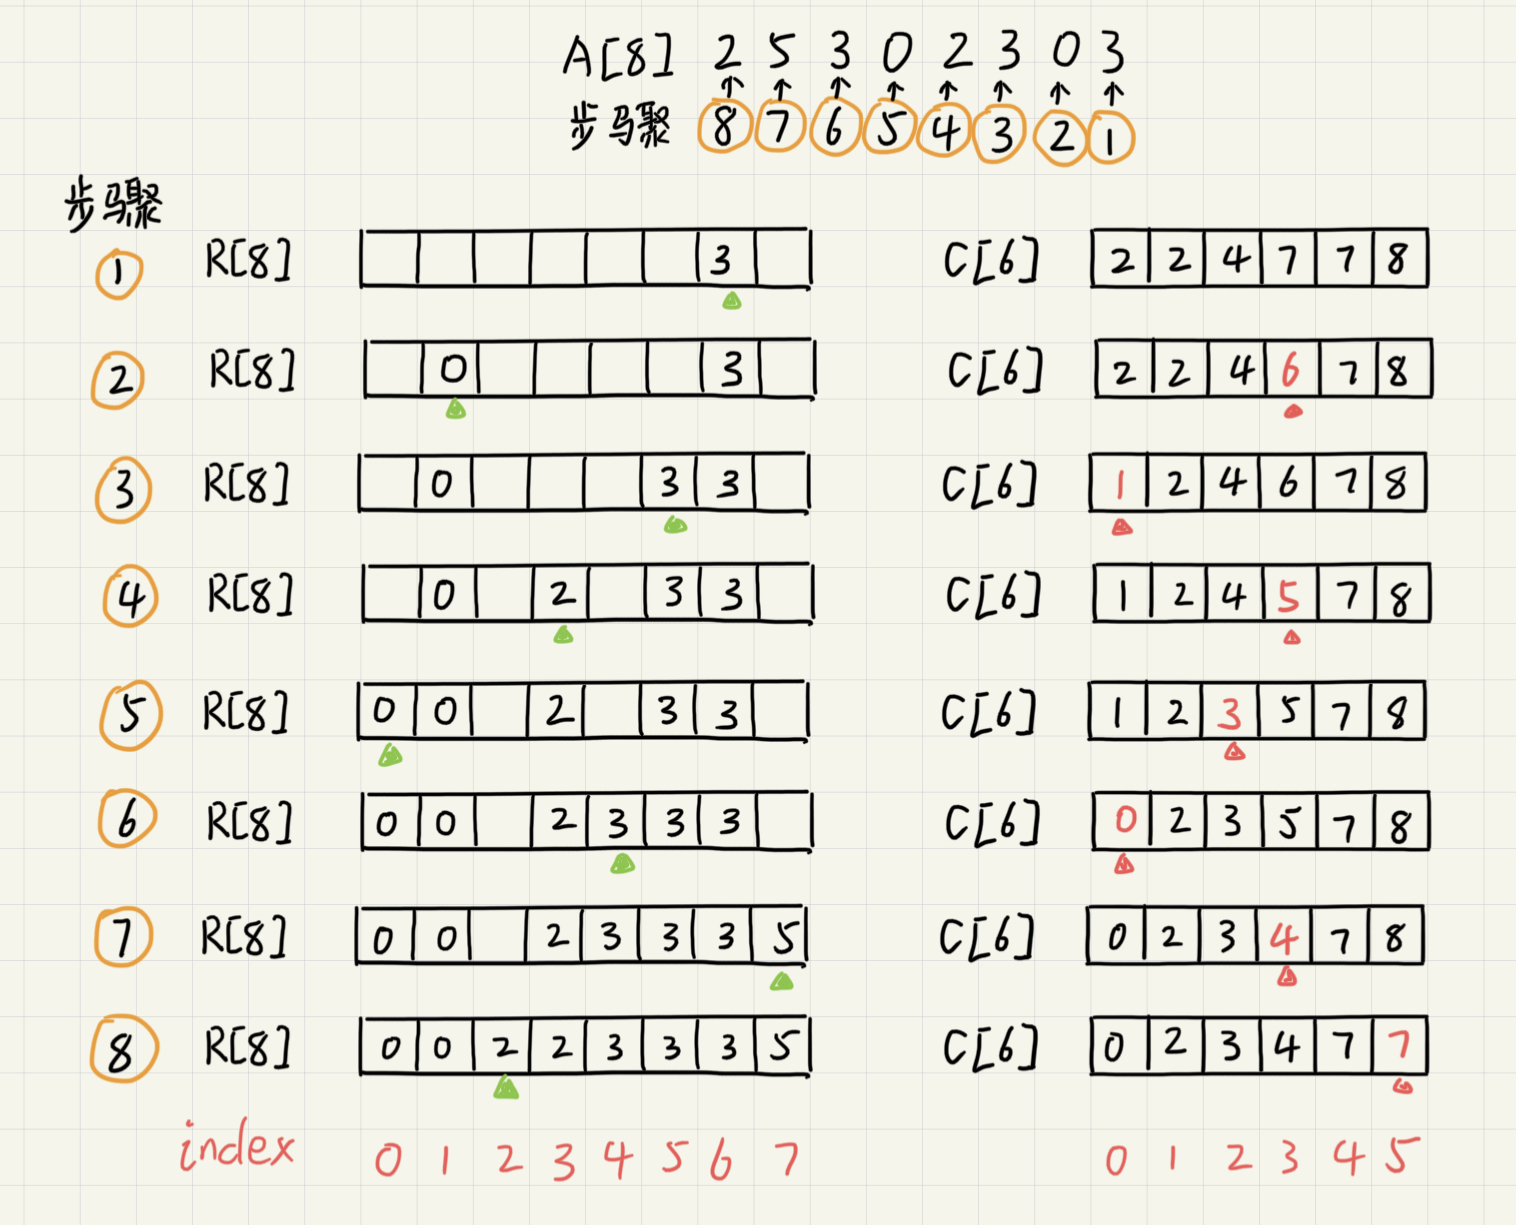 A[8] 2 5 3 0 2 3 0 3
步骤 8 7 6 5 4 3 2 1
步骤
1 R[8] 3 C[6] 2 2 4 7 7 8
2 R[8] 0 3 C[6] 2 2 4 6 7 8
3 R[8] 0 3 3 C[6] 1 2 4 6 7 8
4 R[8] 0 2 3 3 C[6] 1 2 4 5 7 8
5 R[8] 0 0 2 3 3 C[6] 1 2 3 5 7 8
6 R[8] 0 0 2 3 3 3 C[6] 0 2 3 5 7 8
7 R[8] 0 0 2 3 3 3 5 C[6] 0 2 3 4 7 8
8 R[8] 0 0 2 2 3 3 3 5 C[6] 0 2 3 4 7 7
index 0 1 2 3 4 5 6 7 0 1 2 3 4 5